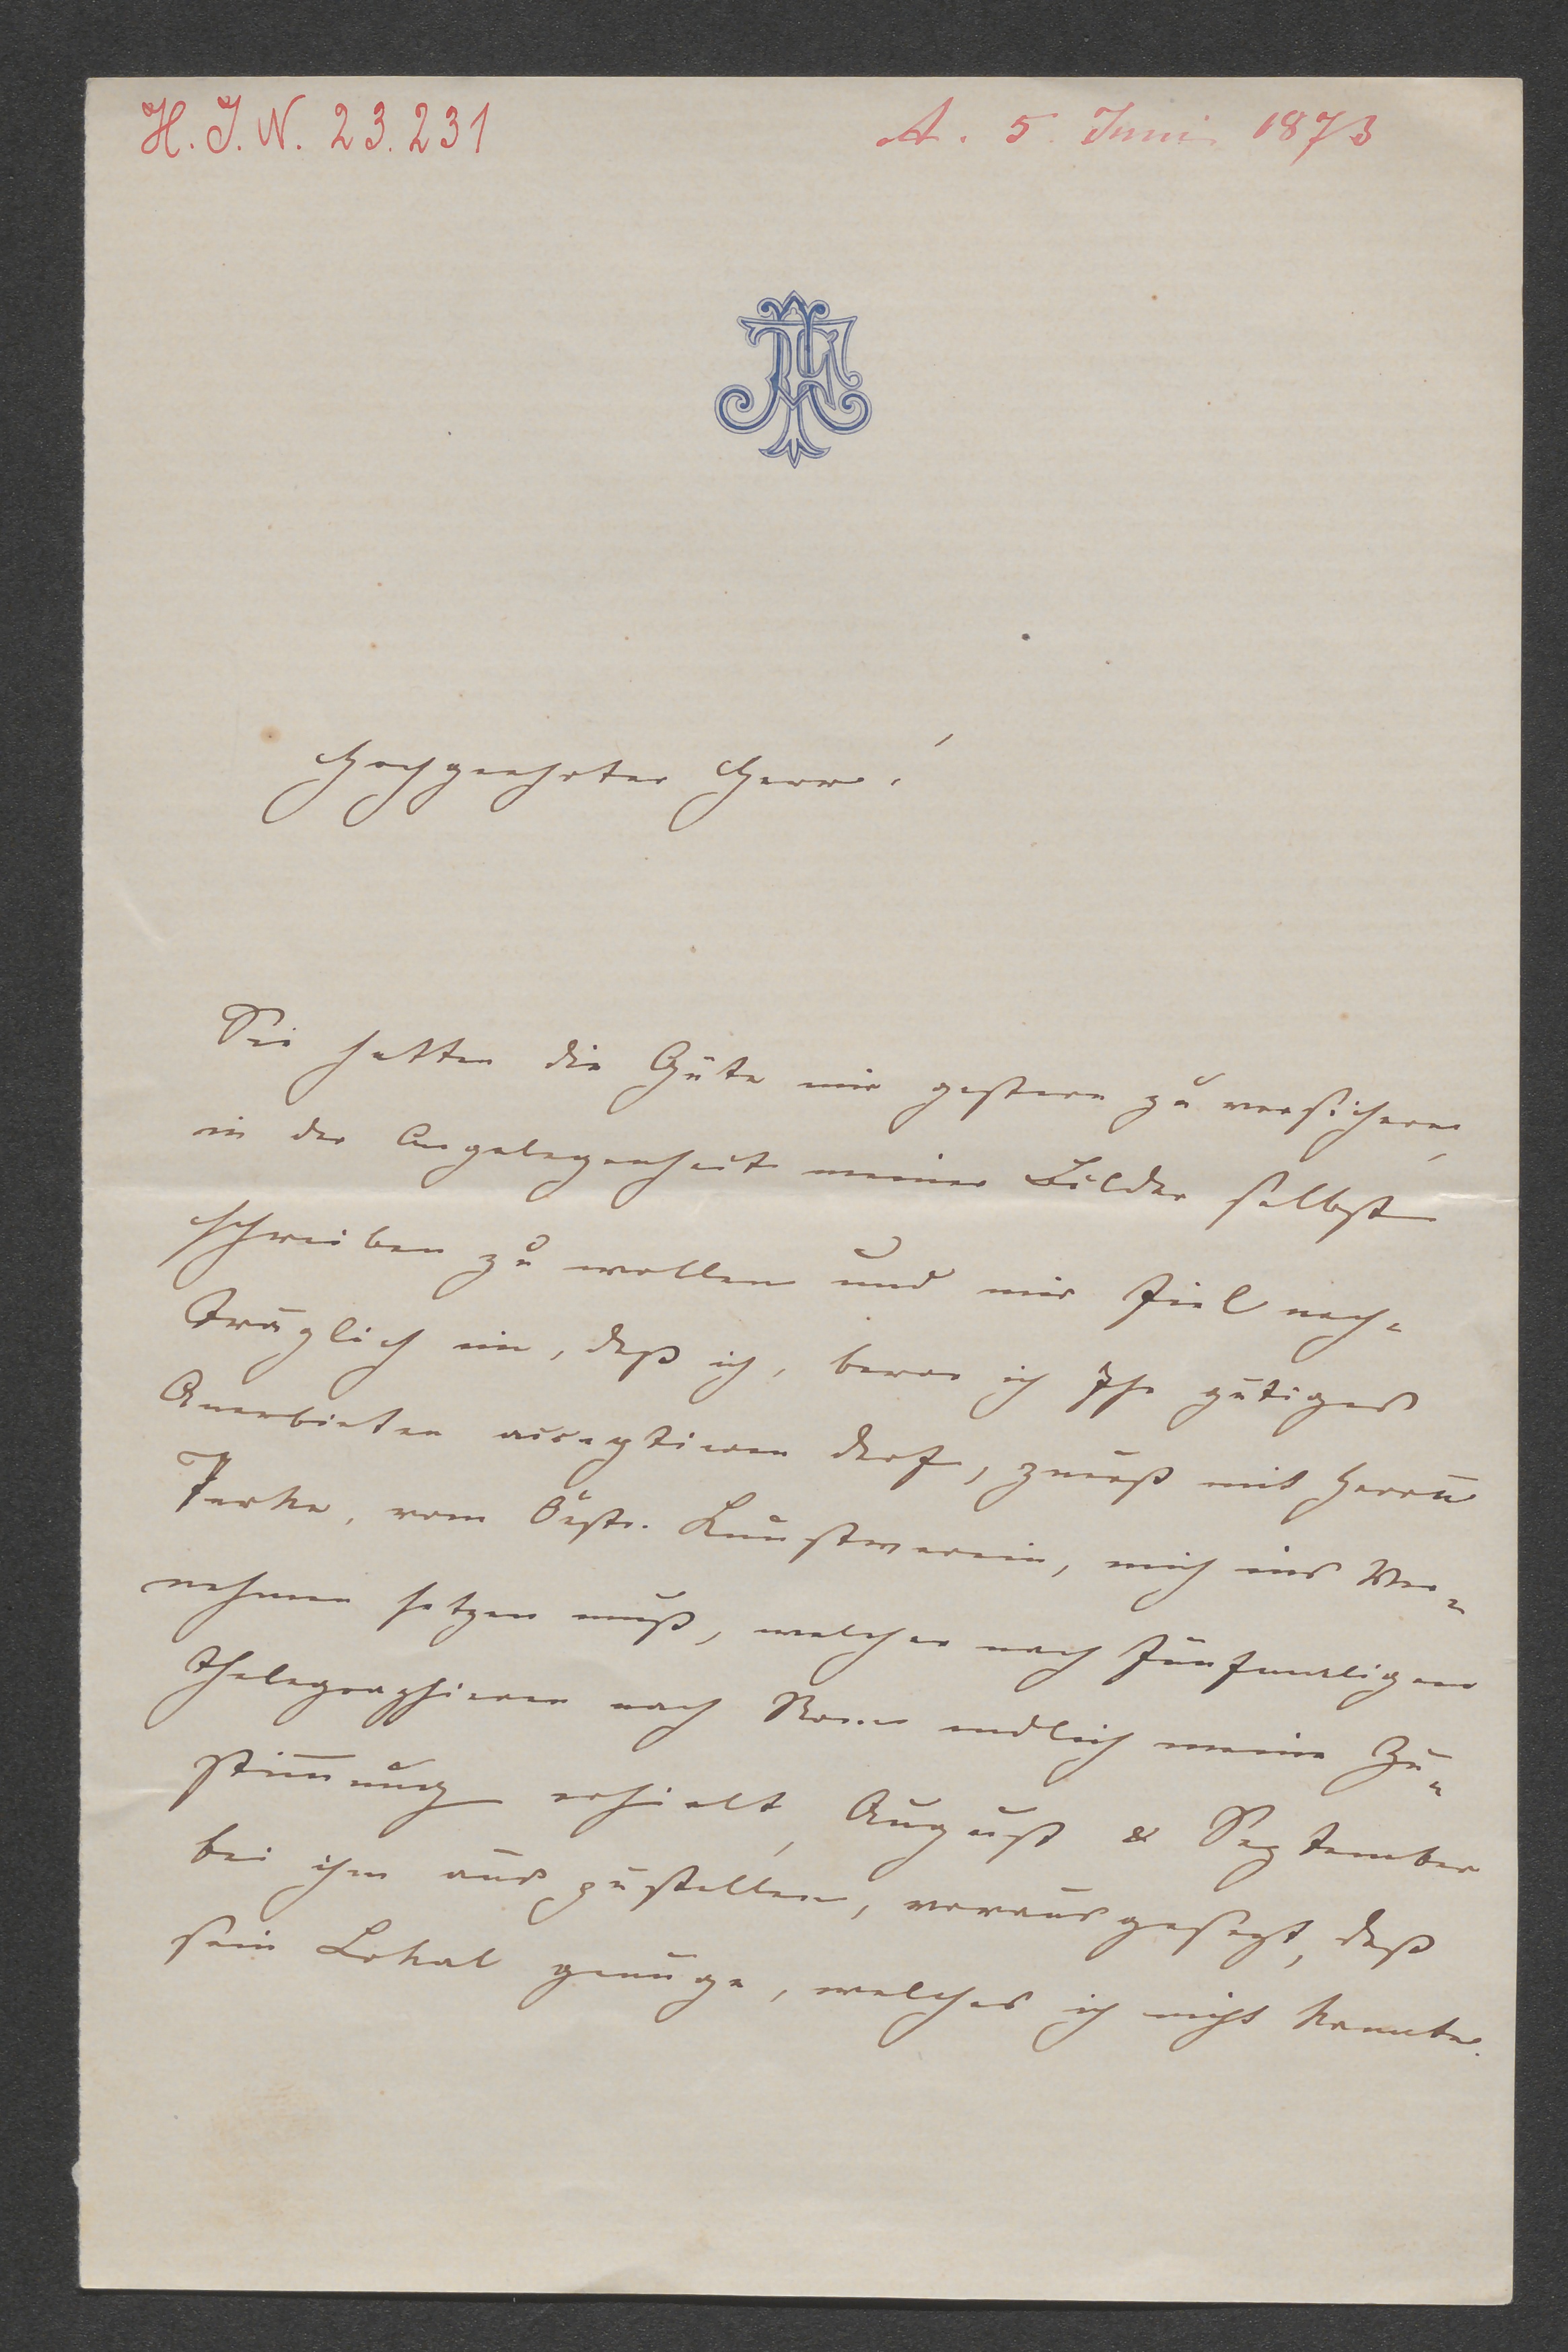 H. I. N. 23.231
A. 5. Juni 1873
AF
Hochgeehrter Herr!
Sie hatten die Güte mir gestern zu versichern,
in der Angelegenheit meiner Bilder selbst
schreiben zu wollen und mir fiel nach-
träglich ein, daß ich, bevor ich Ihr gütiges
Anerbieten acceptieren darf, zuerst mit Herrn
Terke, vom Östr. Kunstverein, mich ins Ver-
nehmen setzen muß, welcher nach fünfmaligem
Thelegraphieren nach Rom endlich meine Zu-
stim̅ung erhielt, August & September
bei ihm auszustellen, vorausgesezt, daß
sein Lokal genüge, welches ich nicht kannte.